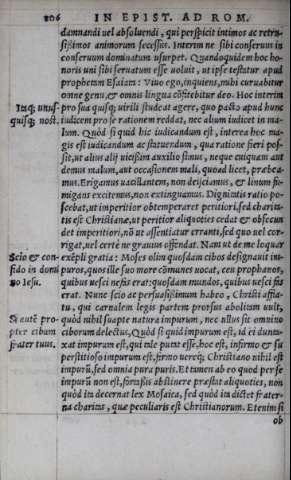 206 IN EPIST. AD ROM.
damnandi uel absoluendi, qui perspicit intimos ac retru-
sissimos animorum secessus. Interim ne sibi conseruus in
conseruum dominatum usurpet. Quandoquidem hoc ho-
noris uni sibi seruatum esse uoluit, ut ipse testatur apud
prophetam Esaiam: Viuo ego, inquiens, mihi curuabitur
omne genu, & omnis lingua cõfitebitur deo. Hoc interim
Itaq; unus- pro sua quisq; uirili studeat agere, quo pacto apud hunc
quisq; nost. iudicem pro se rationem reddat, nec alium iudicet in ma-
lum. Quòd si quid hic iudicandum est, interea hoc ma-
gis est iudicandum ac statuendum, qua ratione fieri pos-
sit, ut alius alij uicissim auxilio simus, neque cuiquam aut
demus malum, aut occasionem mali, quoad licet, præbea-
mus. Erigamus uacillantem, non deijciamus, & linum fu-
migans excitemus, non extinguamus. Dignitatis ratio po-
scebat, ut imperitior obtemperaret peritiori, sed charita-
tis est Christianæ, ut peritior aliquoties cedat & obsecun
det imperitiori, nõ ut assentiatur erranti, sed quo uel cor-
rigat, uel certè ne grauius offendat. Nam ut de me loquar
Scio & con- exẽpli gratia: Moses olim quosdam cibos designauit im-
fido in domi puros, quos ille suo more cõmunes uocat, ceu prophanos,
no Iesu. quibus uesci nefas erat: quosdam mundos, quibus uesci fas
erat. Nunc scio ac persuasissimum habeo, Christi affla-
tu, qui carnalem legis partem prorsus abolitam uult,
Si autẽ pro- quòd nihil suapte natura impurum, nec ullus sit omnino
pter cibum ciborum delectus, Quòd si quid impurum est, id ei dunta-
frater tuus. xat impurum est, qui inle putat esse, hoc est, infirmo & su
perstitioso impurum est, firmo uerèq; Christiano nihil est
impurũ, sed omnia pura puris. Et tamen ab eo quod per se
impurũ non est, fortassis abstinere præstat aliquoties, non
quòd ita decernat lex Mosaica, sed quòd ita dictet frater-
na charitas, quæ peculiaris est Christianorum. Etenim si
ob